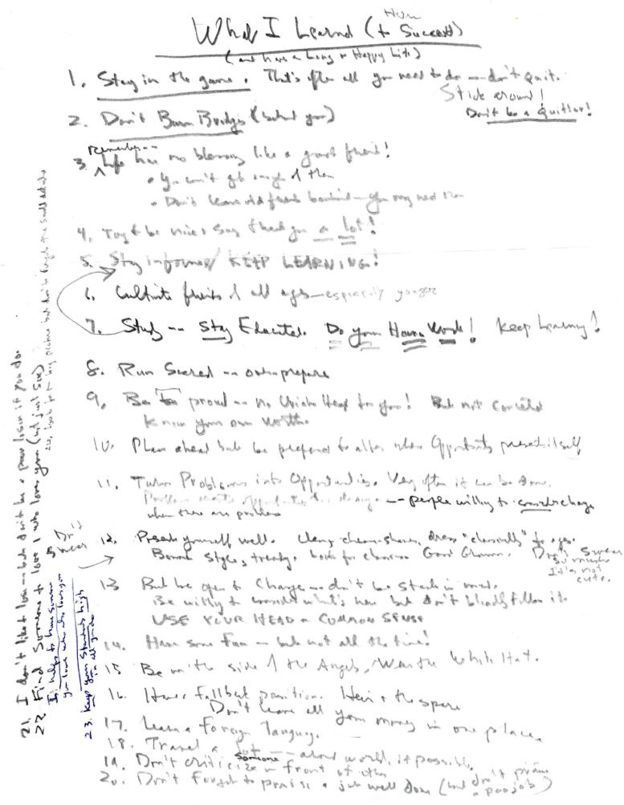 What I Learned (to How Succeed)
(and have a Long & Happy Life)
1. Stay in the game. That's often all you need to do — don't quit.
Stick around!
Don't be a Quitter!
2. Don't Burn Bridges (behind you)
3. Remember — Life has no blessing like a good friend!
• You can't get enough of them
• Don't leave old friends behind — you may need them
4. Try to be nice & say thank you a lot!
5. Stay informed / KEEP LEARNING!
6. Cultivate friends of all ages — especially younger
7. Study — Stay Educated. Do your Home Work! Keep learning!
8. Run Scared — over-prepare
9. Be proud — no Uriah Heep for you! But not conceited
Know your own worth.
10. Plan ahead but be prepared to alter when Opportunity presents itself
11. Turn Problems into Opportunities. Very often it can be done.
Problems create opportunity for change — people willing to consider change
when there are problems
12. Present yourself well. Clean, dress "classically"
Beware styles, trends. Good Grooming. Don't Swear
so much
It's not
cute.
13. But be open to Change — don't be stuck in mud.
Be willing to consider what's new but don't blindly follow it.
USE YOUR HEAD & COMMON SENSE
14. Have some fun — but not all the time!
15. Be on the side of the Angels. Wear the White Hat.
16. Have a fall back position. Heir & the spare
Don't leave all your money in one place.
17. Learn a foreign language.
18. Travel a lot — around world, if possible.
19. Don't criticize someone in front of others
20. Don't forget to praise a job well done (but don't praise
a poor job)
21. I don't like to lose — but don't be a poor loser if you do.
22. Find Someone to love & who loves you (w/ just sex)
It helps to have someone
you love who loves you
23. Keep your Standards high
in all you do
24. look for the big picture but don't forget the small details